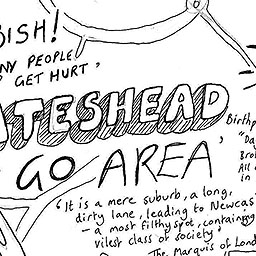 BISH!
NY PEOPLE
GET HURT"
ATESHEAD
GO AREA'
Birthp
"Da
Bro
All
in
"It is a mere suburb, a long,
dirty lane, leading to Newcas
- a most filthy spot, containing
vilest class of society"
The Marquis of Lond